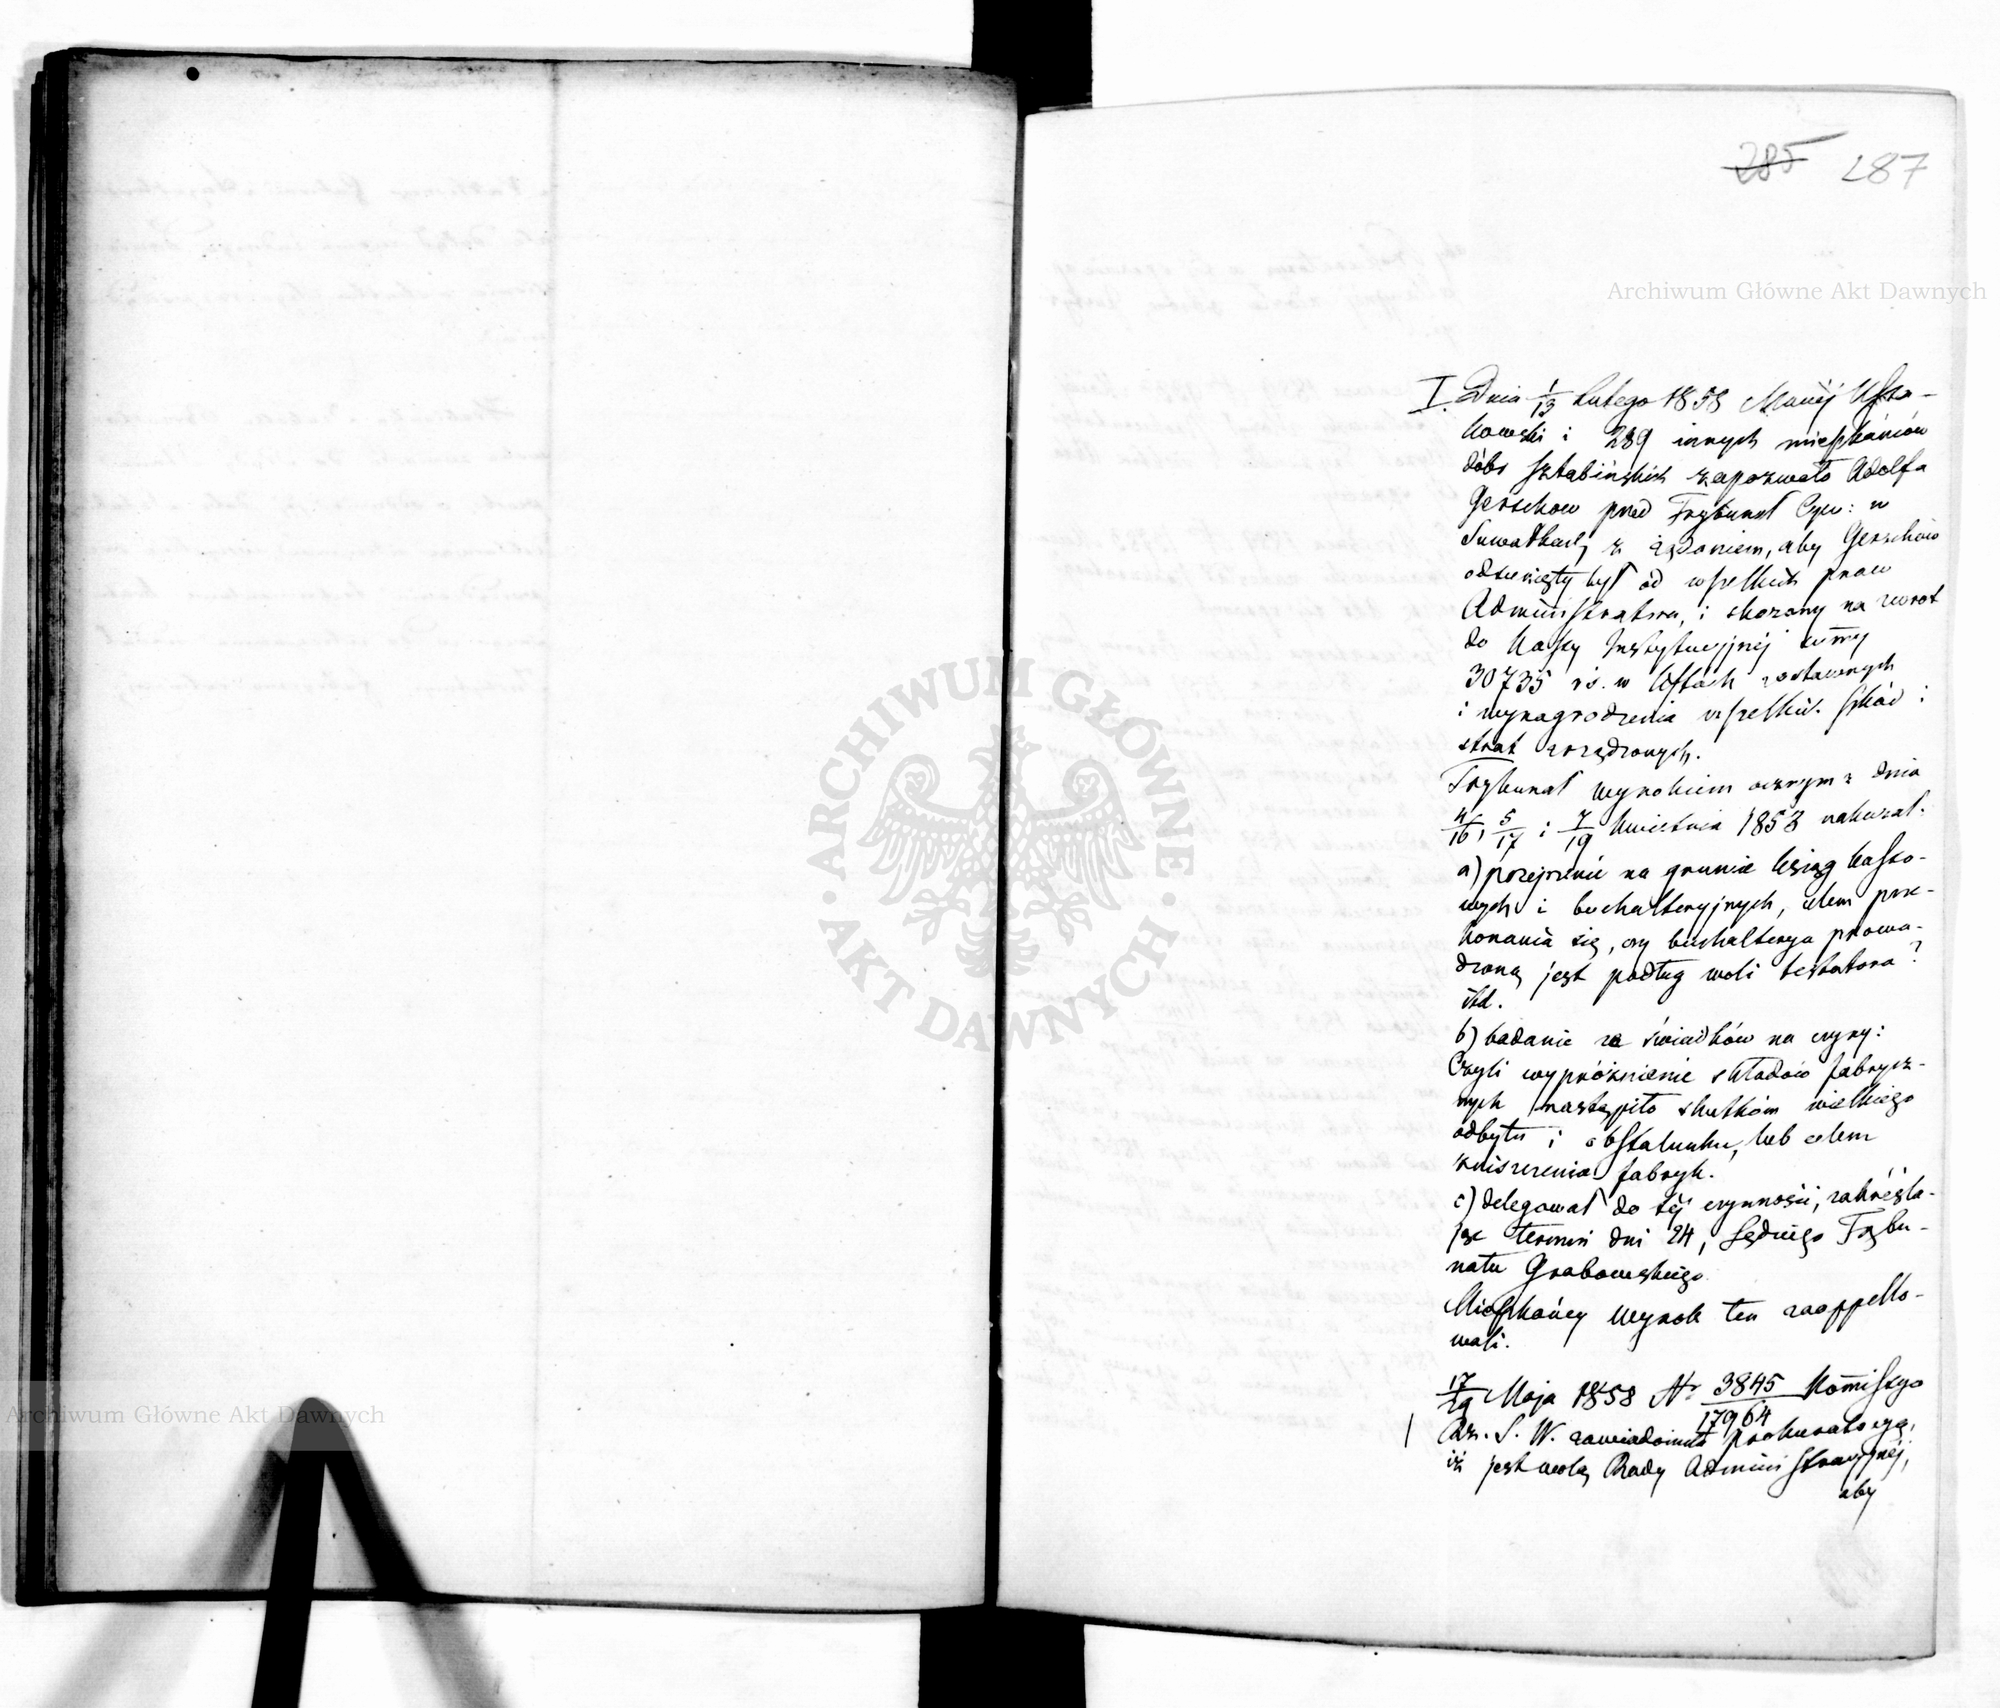 285 287
Archiwum Główne Akt Dawnych
I. Dnia 1/13 Lutego 1858 Maciej
kowski i 289 innych mieszkańców
dóbr Sztabińskich zapozwało Adolfa
Gerschow przed Trybunał Cyw: w
Suwałkach z żądaniem, aby Gerschow
odsunięty był od wszelkich praw
Administratora, i skazany na zwrot
do Kassy Instytucyjnéj summy
30735 rs. w listach zastawnych
i wynagrodzenia wszelkich szkód i
strat zrządzonych.
Trybunał wyrokiem ocznym z dnia
4/16, 5/17 i 7/19 Kwietnia 1858 nakazał:
a) przejrzenie na gruncie ksiąg kasso-
wych i buchalteryjnych, celem prze-
konania się, czy buchalterya prowa-
dzoną jest podług woli testatora?
itd.
b) badanie ze świadków na czyny:
Czyli wypróżnienie składów fabrycz-
nych nastąpiło skutkiem wielkiego
odbytu i obstalunku, lub celem
zniszczenia fabryk.
c) delegował do téj czynności, zakreśla-
jąc termin dni 24, Sędziego Trybu-
nału Grabowskiego
Mieszkańcy wyrok ten zaappello-
wali.
17/29 Maja 1858 Nr 3845/17964 Kommissya
Rz. S. W. zawiadomiła prokuratoryą,
iż jest wolą Rady Administracyjnéj,
aby
ARCHIWUM GŁÓWNE
AKT DAWNYCH
Archiwum Główne Akt Dawnych